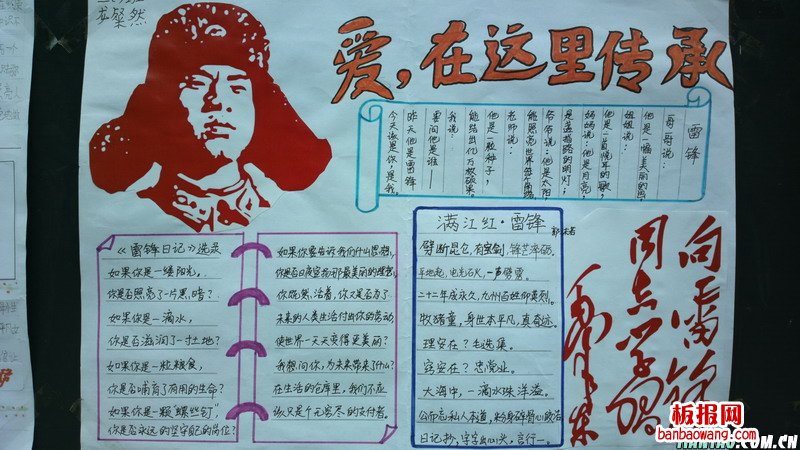 龙粲然
爱，在这里传承
雷锋
哥哥说：
他是一幅美丽的画
姐姐说：
他是一首悦耳的歌，
妈妈说：他是月亮，
是蓝格格的明灯；
爷爷说：他是太阳，
能照亮世界每个角落
老师说：
他是一粒种子，
能结出亿万颗硕果。
我说：
要问他是谁——
昨天他是雷锋
今天该是你，是我。
《雷锋日记》选录
如果你是一缕阳光，
你是否照亮了一片黑暗？
如果你是一滴水，
你是否滋润了一寸土地？
如果你是一粒粮食，
你是否哺育了有用的生命？
如果你是一颗“螺丝钉”
你是否永远的坚守自己的岗位？
如果你要告诉我们什么思想，
你是否日夜宣扬那最美丽的理想，
你既然活着，你又是否为了
未来的人类生活付出你的劳动，
使世界一天天变得更美丽？
我想问你，为未来带来了什么？
在生活的仓库里，我们不应
该只是个无穷尽的支付者。
满江红·雷锋
郭沫若
劈断昆仑，有宝剑，锋芒淬砺。
平地起，电光石火，一声霹雳。
二十二年成永久，九州百姓仰英烈。
牧猪童，身世本平凡，真奇迹。
理安在？毛选集。
窍安在？忠党业。
大海中，一滴水珠洋溢。
公而忘私人本道，
日记抄，字字出心头，言行一。
向雷锋
同志学习
毛泽东
板报网
banbaowang.com